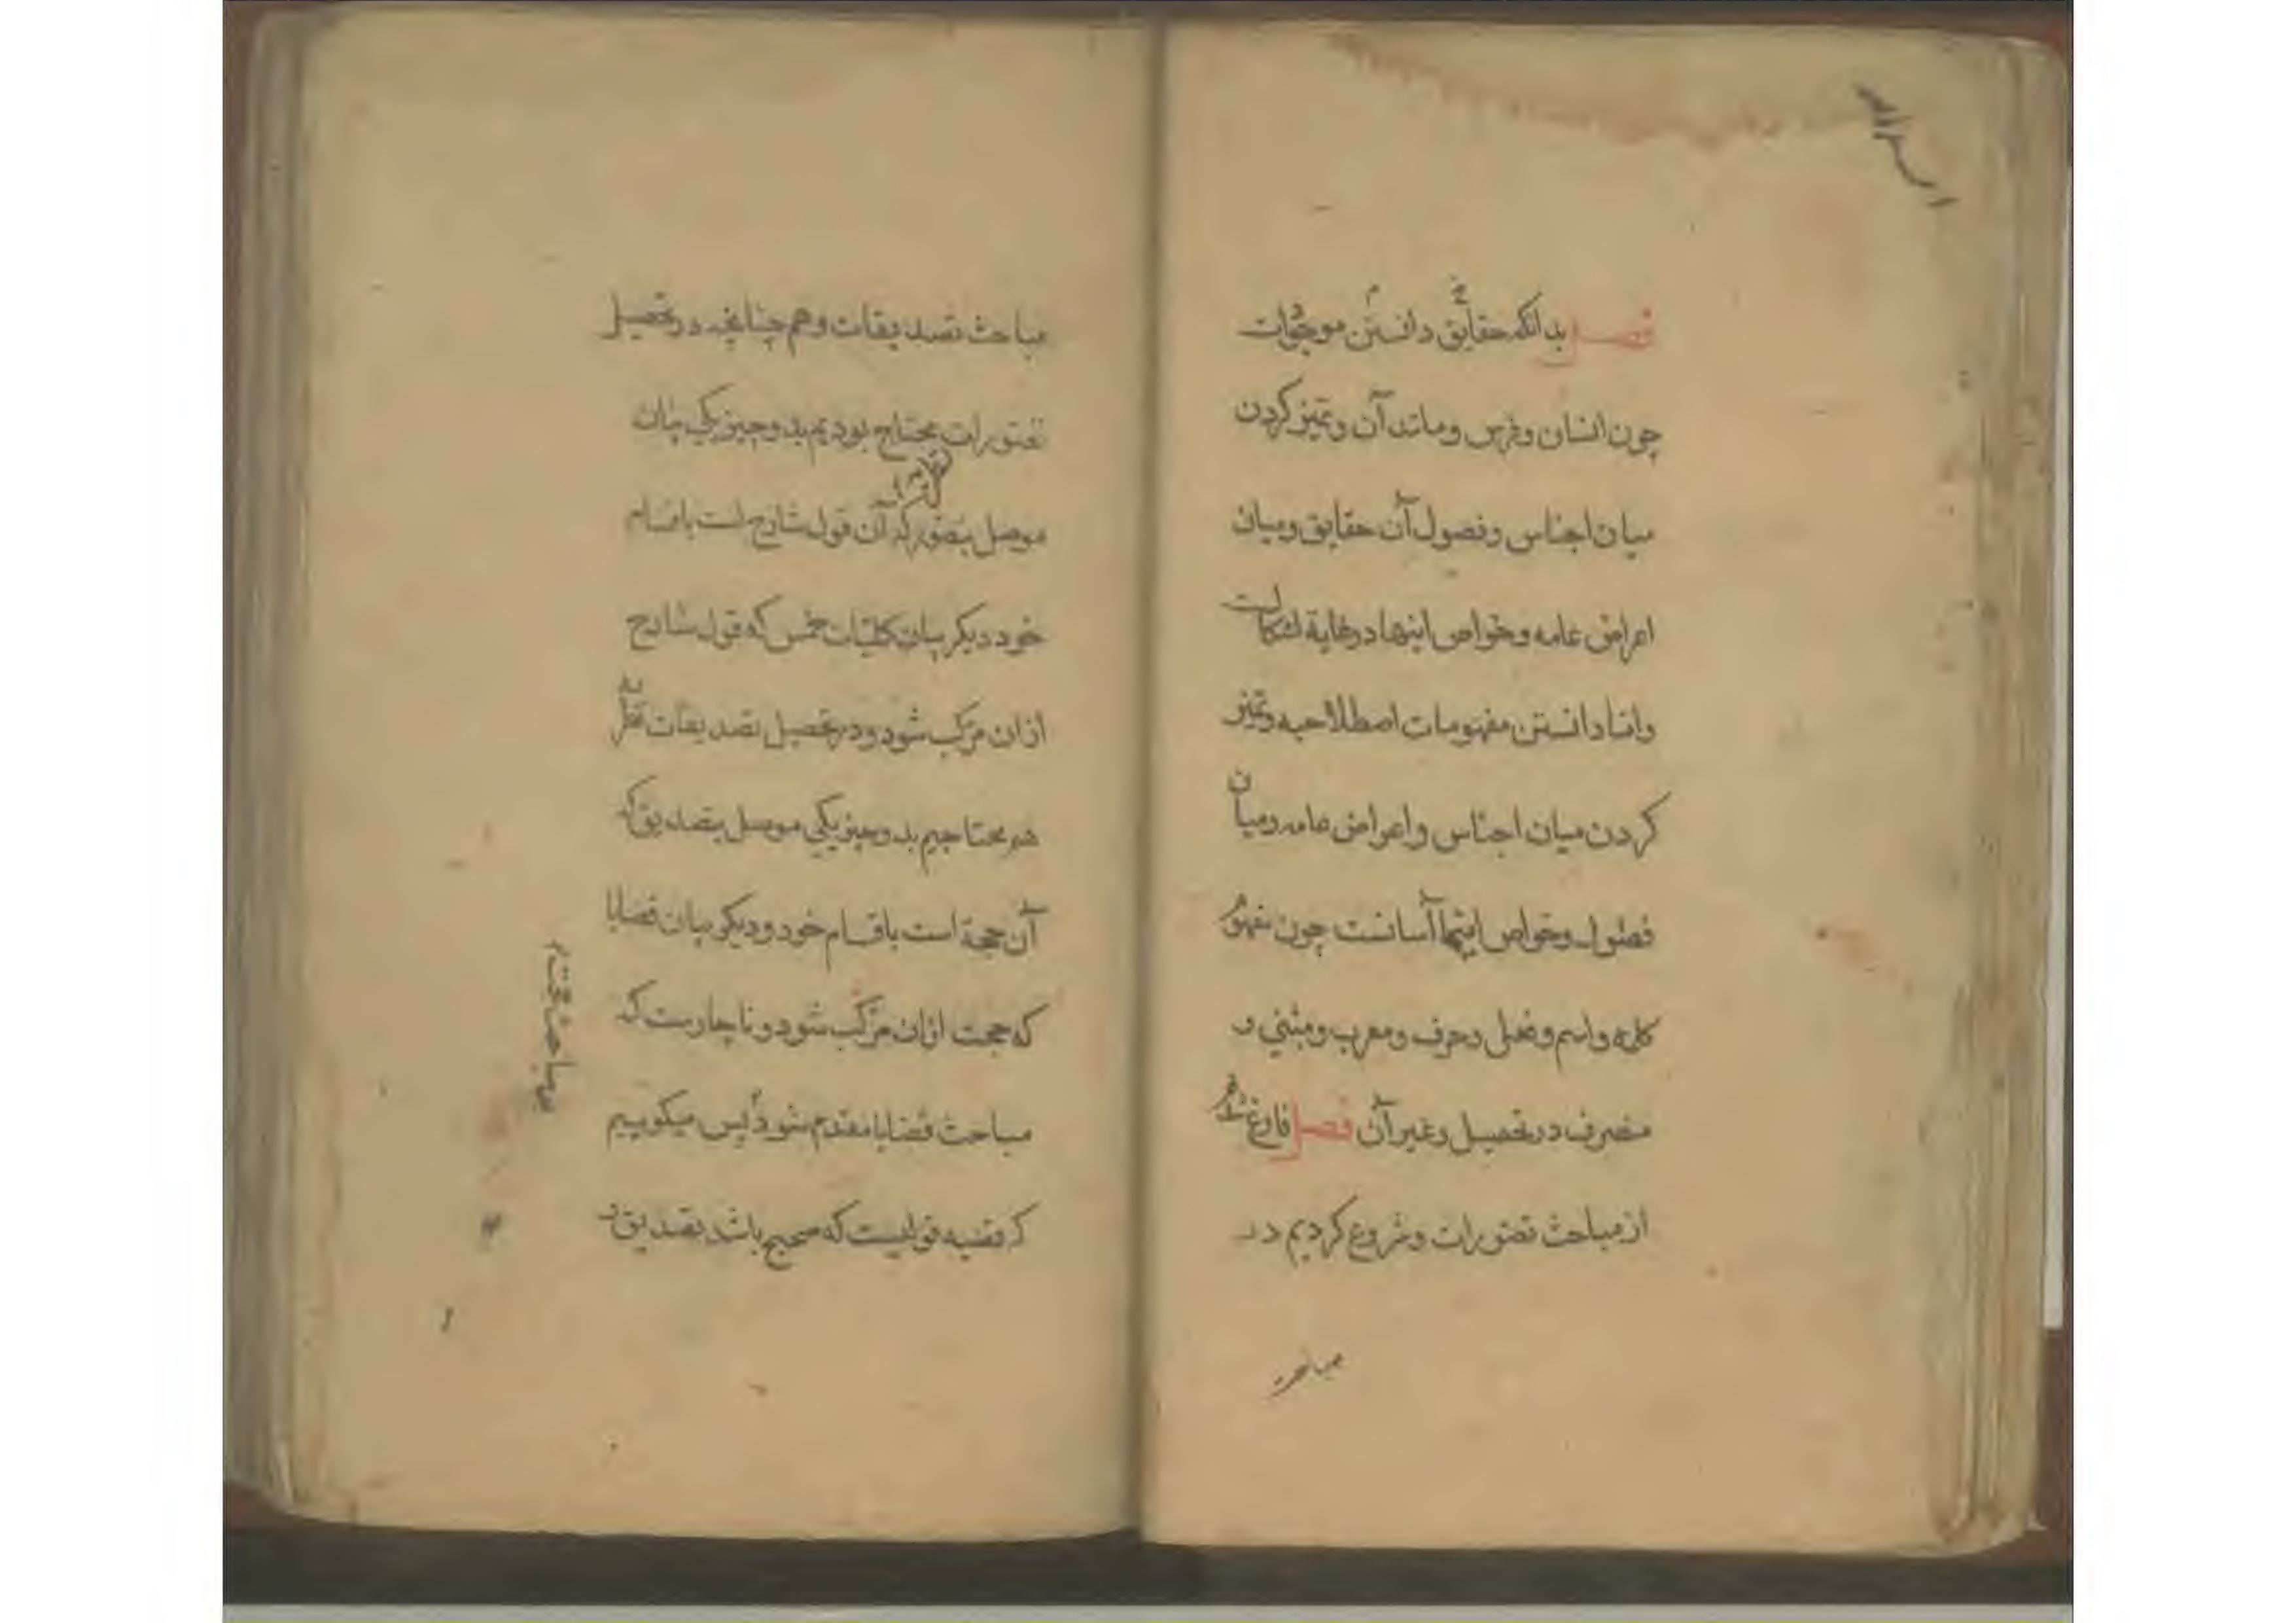 فصل بدانکه حقایق دانستن موجودات
چون انسان و فرس و مانند آن و تمیز کردن
میان اجناس و فصول آن حقایق و میان
اعراض عامه و خواص اینها در غایة اشکالست
واما دانستن مفهومات اصطلاحیه و تمیز
کردن میان اجناس و اعراض عامه و میان
فصول و خواص اینها آسانست چون مفهوم
کلمه واسم و فعل و حرف و معرب و مبنی و
منصرف در تحصیل و غیر آن فصل فارغ شدیم
از مباحث تصورات و شروع کردیم در
مباحث
مباحث تصدیقات و هم چنانچه در تحصیل
تصورات محتاج بودیم بدو چیز یکی بیان
موصل بتصور که آن قول شارح است باقسام
خود دیگر بیان کلیات خمس که قول شارح
ازان مرکب شود و در تحصیل تصدیقات نظریه
هم محتاجیم بدو چیز یکی موصل بتصدیق که
آن حجة است باقسام خود و دیگر بیان قضایا
که حجت ازان مرکب شود و ناچارست که
مباحث قضایا مقدم شود پس میکوییم
که قضیه قولیست که صحیح باشد تصدیق و